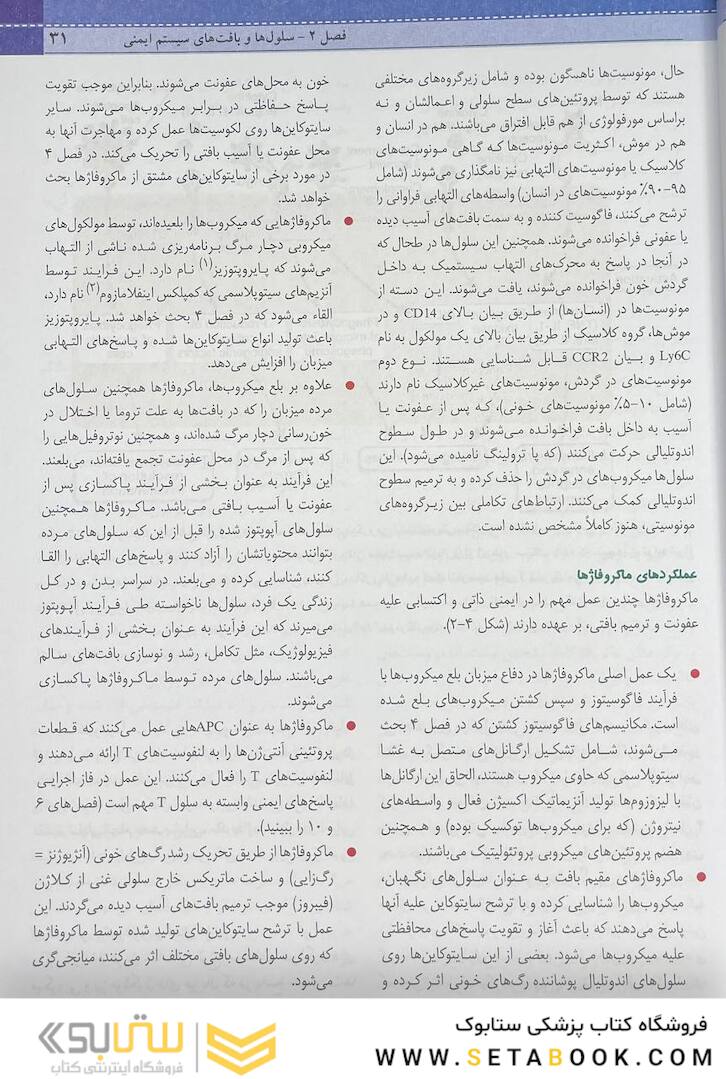 فصل ۲ - سلول‌ها و بافت‌های سیستم ایمنی ۳۱
حال، مونوسیت‌ها ناهسگون بوده و شامل زیرگروه‌های مختلفی
هستند که توسط پروتئین‌های سطح سلولی و اعمالشان و نه
براساس مورفولوژی از هم قابل افتراق می‌باشند. هم در انسان و
هم در موش، اکثریت مونوسیت‌ها که گاهی مونوسیت‌های
کلاسیک یا مونوسیت‌های التهابی نیز نامگذاری می‌شوند (شامل
۹۵-۹۰٪ مونوسیت‌های در انسان) واسطه‌های التهابی فراوانی را
ترشح می‌کنند، فاگوسیت کننده و به سمت بافت‌های آسیب دیده
یا عفونی فراخوانده می‌شوند. همچنین این سلول‌ها در طحال که
در آنجا در پاسخ به محرک‌های التهاب سیستمیک به داخل
گردش خون فراخوانده می‌شوند، یافت می‌شوند. این دسته از
مونوسیت‌ها در (انسان‌ها) از طریق بیان بالای CD14 و در
موش‌ها، گروه کلاسیک از طریق بیان بالای یک مولکول به نام
Ly6C و بیان CCR2 قابل شناسایی هستند. نوع دوم
مونوسیت‌های در گردش، مونوسیت‌های غیرکلاسیک نام دارند
(شامل ۱۰-۵٪ مونوسیت‌های خونی)، که پس از عفونت یا
آسیب به داخل بافت فراخوانده می‌شوند و در طول سطوح
اندوتلیالی حرکت می‌کنند (که پا ترولینگ نامیده می‌شود). این
سلول‌ها میکروب‌های در گردش را حذف کرده و به ترمیم سطوح
اندوتلیالی کمک می‌کنند. ارتباط‌های تکاملی بین زیرگروه‌های
مونوسیتی، هنوز کاملاً مشخص نشده است.
عملکردهای ماکروفاژها
ماکروفاژها چندین عمل مهم را در ایمنی ذاتی و اکتسابی علیه
عفونت و ترمیم بافتی، بر عهده دارند (شکل ۴-۲).
● یک عمل اصلی ماکروفاژها در دفاع میزبان بلع میکروب‌ها با
فرآیند فاگوسیتوز و سپس کشتن میکروب‌های بلع شده
است. مکانیسم‌های فاگوسیتوز کشتن که در فصل ۴ بحث
می‌شوند، شامل تشکیل ارگانل‌های متصل به غشا
سیتوپلاسمی که حاوی میکروب هستند، الحاق این ارگانل‌ها
با لیزوزوم‌ها تولید آنزیماتیک اکسیژن فعال و واسطه‌های
نیتروژن (که برای میکروب‌ها توکسیک بوده) و همچنین
هضم پروتئین‌های میکروبی پروتئولیتیک می‌باشند.
● ماکروفاژهای مقیم بافت به عنوان سلول‌های نگهبان،
میکروب‌ها را شناسایی کرده و با ترشح سایتوکاین علیه آنها
پاسخ می‌دهند که باعث آغاز و تقویت پاسخ‌های محافظتی
علیه میکروب‌ها می‌شود. بعضی از این سایتوکاین‌ها روی
سلول‌های اندوتلیال پوشاننده رگ‌های خونی اثر کرده و
خون به محل‌های عفونت می‌شوند. بنابراین موجب تقویت
پاسخ حفاظتی در برابر میکروب‌ها می‌شوند. سایر
سایتوکاین‌ها روی لکوسیت‌ها عمل کرده و مهاجرت آنها به
محل عفونت یا آسیب بافتی را تحریک می‌کند. در فصل ۴
در مورد برخی از سایتوکاین‌های مشتق از ماکروفاژها بحث
خواهد شد.
● ماکروفاژهایی که میکروب‌ها را بلعیده‌اند، توسط مولکول‌های
میکروبی دچار مرگ برنامه‌ریزی شده ناشی از التهاب
می‌شوند که پایروپتوزیز(۱) نام دارد. این فرایند توسط
آنزیم‌های سیتوپلاسمی که کمپلکس اینفلامازوم(۲) نام دارد،
القاء می‌شود که در فصل ۴ بحث خواهد شد. پایروپتوزیز
باعث تولید انواع سایتوکاین‌ها شده و پاسخ‌های التهابی
میزبان را افزایش می‌دهد.
● علاوه بر بلع میکروب‌ها، ماکروفاژها همچنین سلول‌های
مرده میزبان را که در بافت‌ها به علت تروما یا اختلال در
خون‌رسانی دچار مرگ شده‌اند، و همچنین نوتروفیل‌هایی را
که پس از مرگ در محل عفونت تجمع یافته‌اند، می‌بلعند.
این فرآیند به عنوان بخشی از فرآیند پاکسازی پس از
عفونت یا آسیب بافتی می‌باشد. ماکروفاژها همچنین
سلول‌های آپوپتوز شده را قبل از این که سلول‌های مرده
بتوانند محتویاتشان را آزاد کنند و پاسخ‌های التهابی را القا
کنند، شناسایی کرده و می‌بلعند. در سراسر بدن و در کل
زندگی یک فرد، سلول‌ها ناخواسته طی فرآیند آپوپتوز
می‌میرند که این فرآیند به عنوان بخشی از فرآیندهای
فیزیولوژیک، مثل تکامل، رشد و نوسازی بافت‌های سالم
می‌باشند. سلول‌های مرده توسط ماکروفاژها پاکسازی
می‌شوند.
● ماکروفاژها به عنوان APCهایی عمل می‌کنند که قطعات
پروتئینی آنتی‌ژن‌ها را به لنفوسیت‌های T ارائه می‌دهند و
لنفوسیت‌های T را فعال می‌کنند. این عمل در فاز اجرایی
پاسخ‌های ایمنی وابسته به سلول T مهم است (فصل‌های ۶
و ۱۰ را ببینید).
● ماکروفاژها از طریق تحریک رشد رگ‌های خونی (آنژیوژنز =
رگ‌زایی) و ساخت ماتریکس خارج سلولی غنی از کلاژن
(فیبروز) موجب ترمیم بافت‌های آسیب دیده می‌گردند. این
عمل با ترشح سایتوکاین‌های تولید شده توسط ماکروفاژها
که روی سلول‌های بافتی مختلف اثر می‌کنند، میانجی‌گری
می‌شود.
فروشگاه کتاب پزشکی ستابوک
WWW.SETABOOK.COM
ستابوک
فروشگاه اینترنتی کتاب